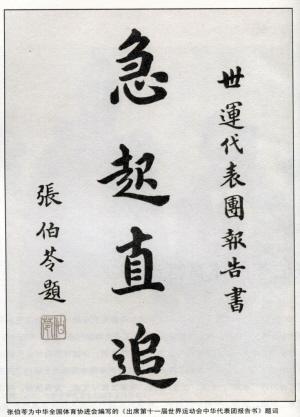 世運代表團報告書
急起直追
張伯苓題
张伯苓为中华全国体育协进会编写的《出席第十一届世界运动会中华代表团报告书》题词